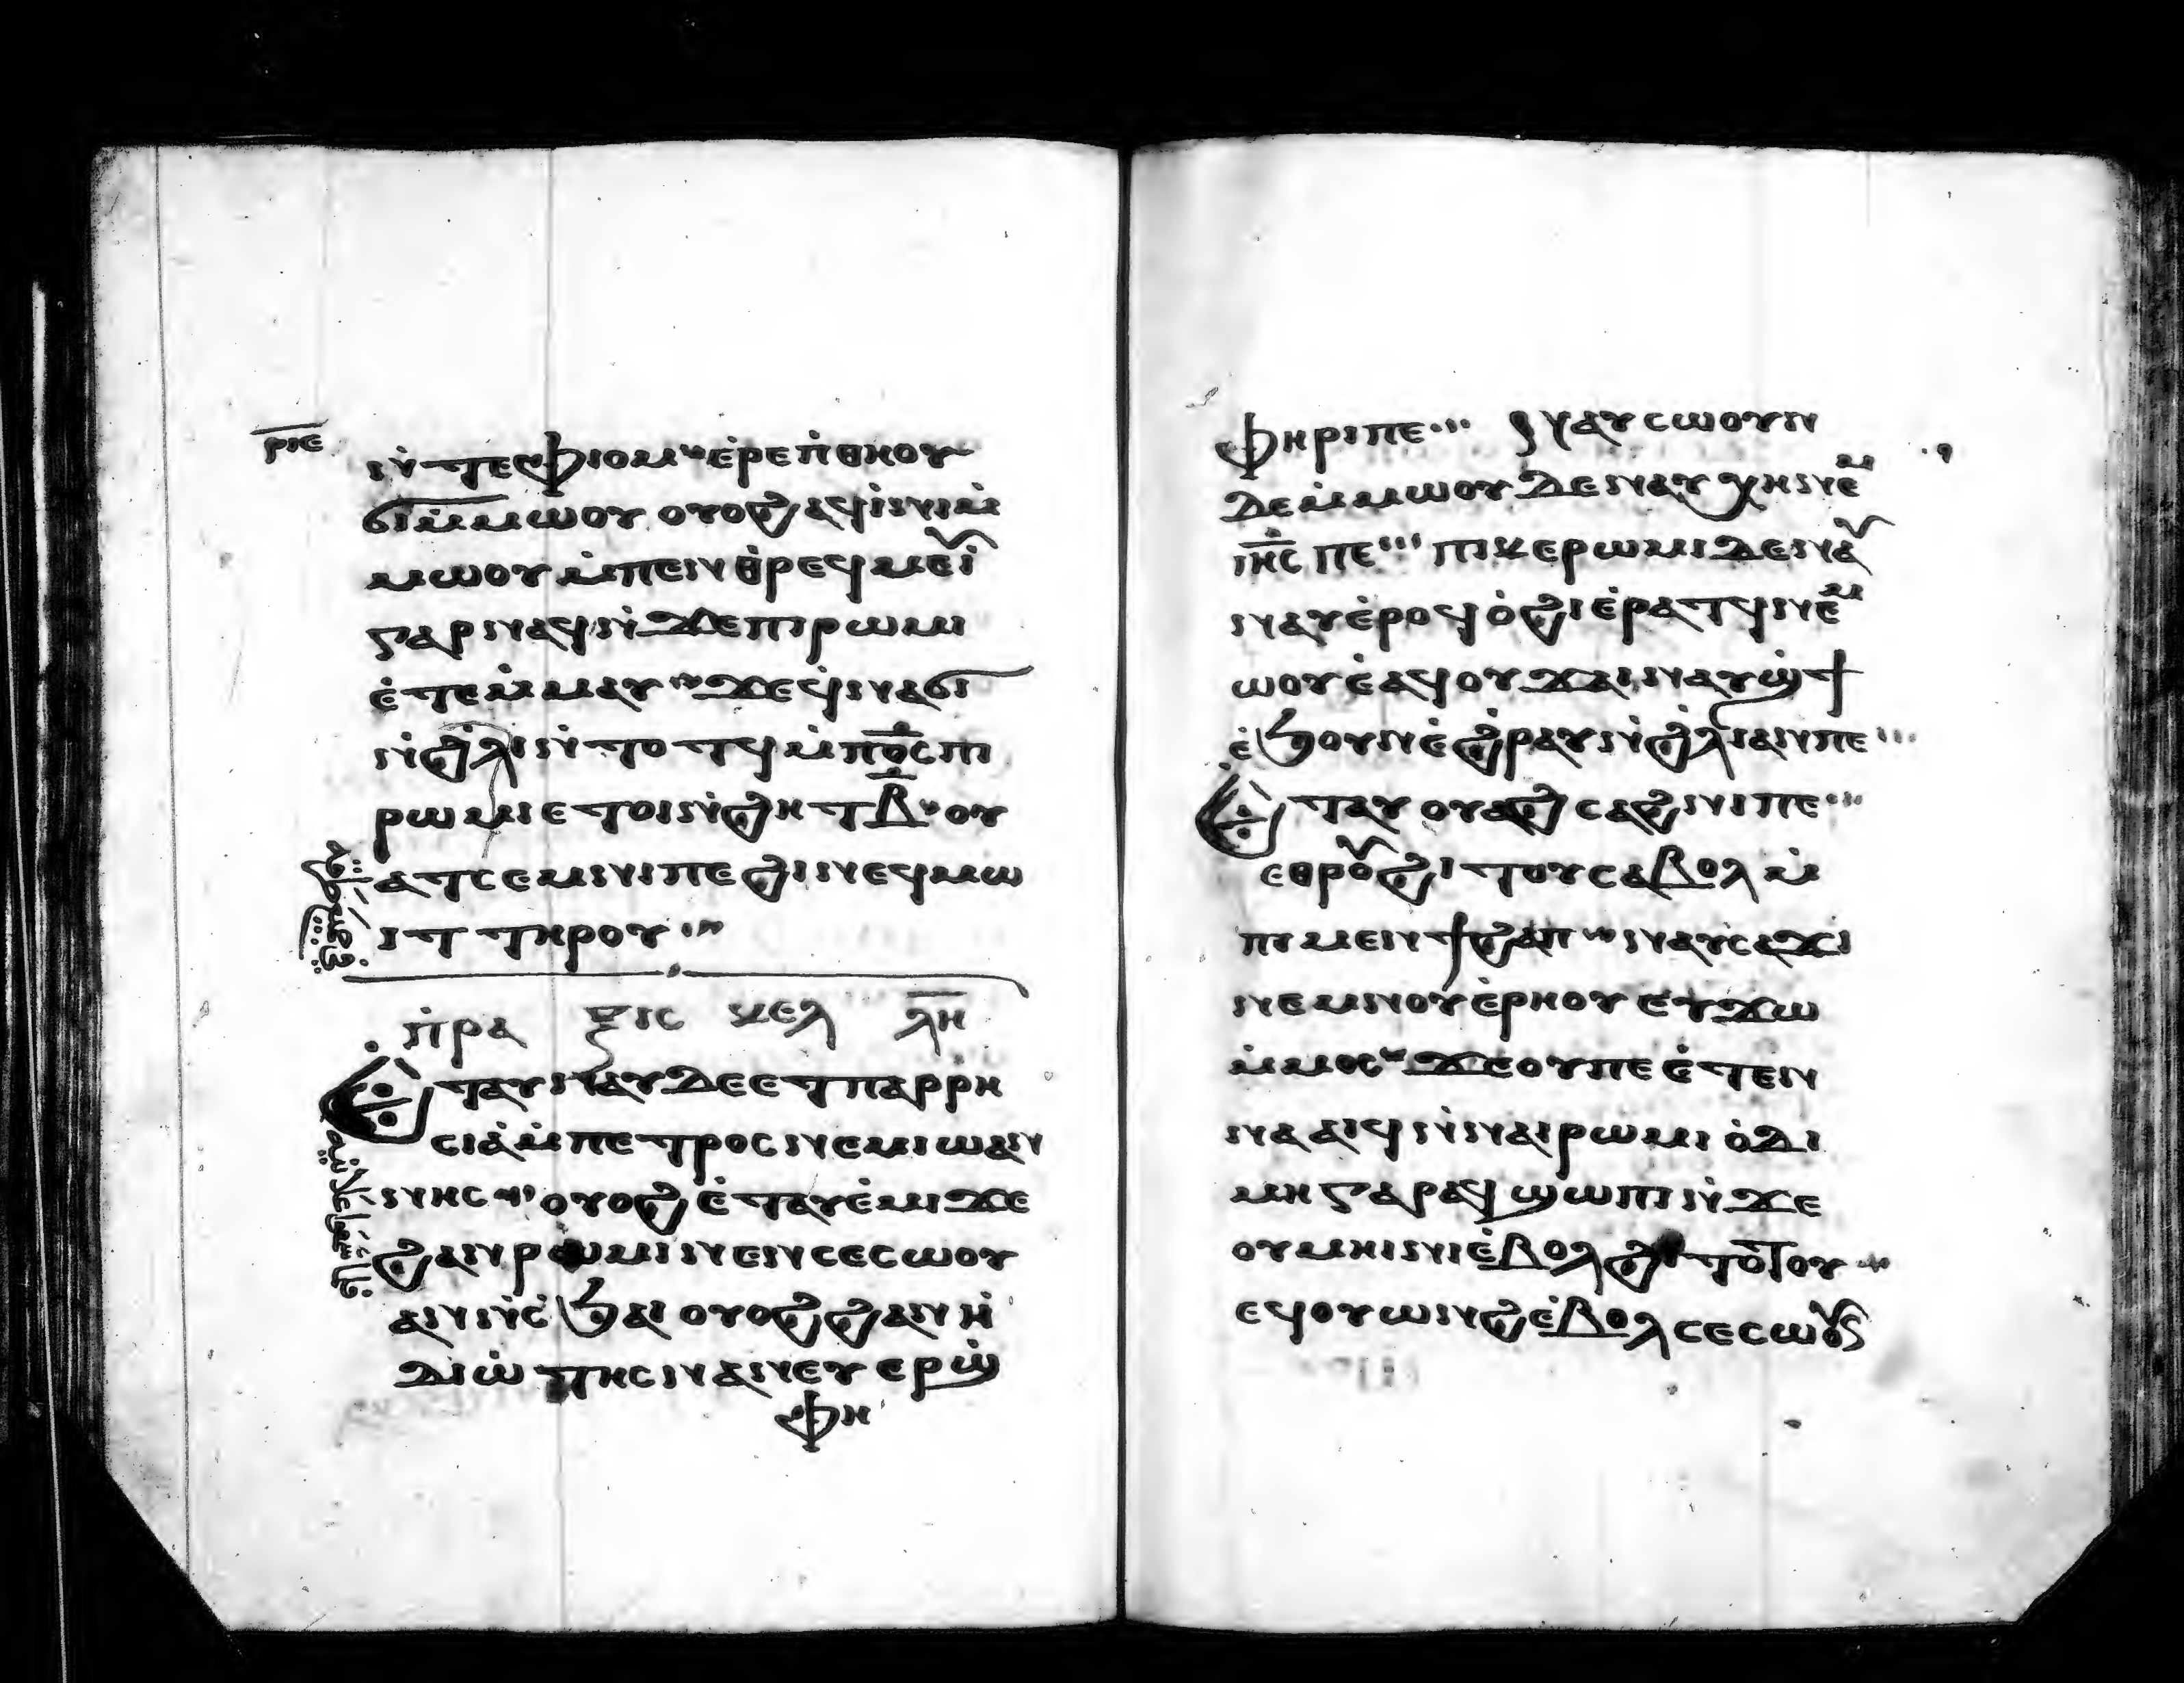 ⲣⲓⲉ
ⲛ̀ⲧⲉⲫⲓⲟⲙ ⲉ̀ⲣⲉⲡ̀ⲑⲏⲟⲩ
ϭⲓⲙ̀ⲙⲱⲟⲩ ⲟⲩⲟϩ ⲁϥⲓ̀ⲛⲓⲙ̀
ⲙⲱⲟⲩ ⲙ̀ⲡⲉⲛⲑ̀ⲣⲉϥⲙⲉⲓ̀
ⲅⲁⲣ ⲛⲁϥⲛ̀ϫⲉⲡⲓⲣⲱⲙⲓ
ⲉ̀ⲧⲉⲙ̀ⲙⲁⲩ ϫⲉϥ̀ⲛⲁϭⲓ
ⲛ̀ϩ̀ⲗⲓⲛ̀ⲧⲟⲧϥ ⲙ̀ⲡⲟ̅ⲥ̅ ⲡⲓ
ⲣⲱⲙⲓ ⲉⲧⲟⲓⲛ̀ϩⲏⲧ ⲃ̅ ⲟⲩ
ⲁⲧⲥⲉⲙⲛⲓⲡⲉ ϩⲓⲛⲉϥⲙⲱ
ⲓⲧ ⲧⲏⲣⲟⲩ
ⲡ̀ⲣⲁ ⲝⲓⲥ ⲕⲉⲗ ⲗ̅ⲏ̅
Ⲉⲧⲁⲩⲛⲁⲩ ⲇⲉ ⲉⲧⲡⲁⲣⲣⲏ
ⲥⲓⲁ̀ⲙ̀ⲡⲉⲧⲣⲟⲥ ⲛⲉⲙⲓⲱⲁⲛ
ⲛⲏⲥ ⲟⲩⲟϩ ⲉ̀ⲧⲁⲩⲉ̀ⲙⲓ ϫⲉ
ϩⲁⲛⲣⲱⲙⲓ ⲛⲉⲛⲥⲉⲥⲱⲟⲩ
ⲁⲛⲛ̀ⲥ̀ϧⲁⲓ ⲟⲩⲟϩ ϩⲁⲛⲏ̀
ⲇⲓⲱ̀ⲧⲏⲥ ⲛⲁⲛⲉⲩ ⲉⲣϣ̀
ⲫⲏ
ⲫⲏⲣⲓⲡⲉ ⲛⲁⲩⲥⲱⲟⲩⲛ
ⲇⲉⲙ̀ⲙⲱⲟⲩ ϫⲉⲛⲁⲩ ⲭⲏⲛⲉⲙ
ⲓⲏ̅ⲥ ⲡⲉ ⲡⲓⲕⲉⲣⲱⲙⲓ ⲇⲉⲛⲁⲩ
ⲛⲁⲩⲉ̀ⲣⲟϥ ⲟ̀ϩⲓ ⲉ̀ⲣⲁⲧϥ ⲛⲉⲙ
ⲱⲟⲩ ⲉ̀ⲁϥⲟⲩϫⲁⲓ ⲛⲁⲩϣ̀ϯ
ⲉ̀ϧⲟⲩⲛⲉ̀ϩ̀ⲣⲁⲩⲛ̀ϩ̀ⲗⲓⲁⲛⲡⲉ
Ⲉⲧⲁⲩ ⲟⲩⲁϩ ⲥⲁϩⲛⲓⲡⲉ
ⲉⲑⲣⲟⲩϩⲓⲧⲟⲩⲥⲁⲃⲟⲗ ⲙ̀
ⲡⲓⲙⲉⲛϯϩⲁⲡ ⲛⲁⲩⲥⲁϫⲓ
ⲛⲉⲙⲛⲟⲩⲉ̀ⲣⲏⲟⲩ ⲉⲩϫⲱ
ⲙ̀ⲙⲟⲥ ϫⲉⲟⲩⲡⲉ ⲉ̀ⲧⲉⲛ
ⲛⲁⲁⲓϥ ⲛ̀ⲛⲁⲓⲣⲱⲙⲓ ⲟ̀ⲇⲓ
ⲙⲏ ⲅⲁⲣ ⲁϥϣⲱⲡⲓ ⲛ̀ϫⲉ
ⲟⲩⲙⲏⲓⲛⲓⲉ̀ⲃⲟⲗϩⲓⲧⲟⲧⲟⲩ
ⲉϥⲟⲩⲱⲛϩⲉ̀ⲃⲟⲗ ⲥⲉⲥⲱⲟⲩ